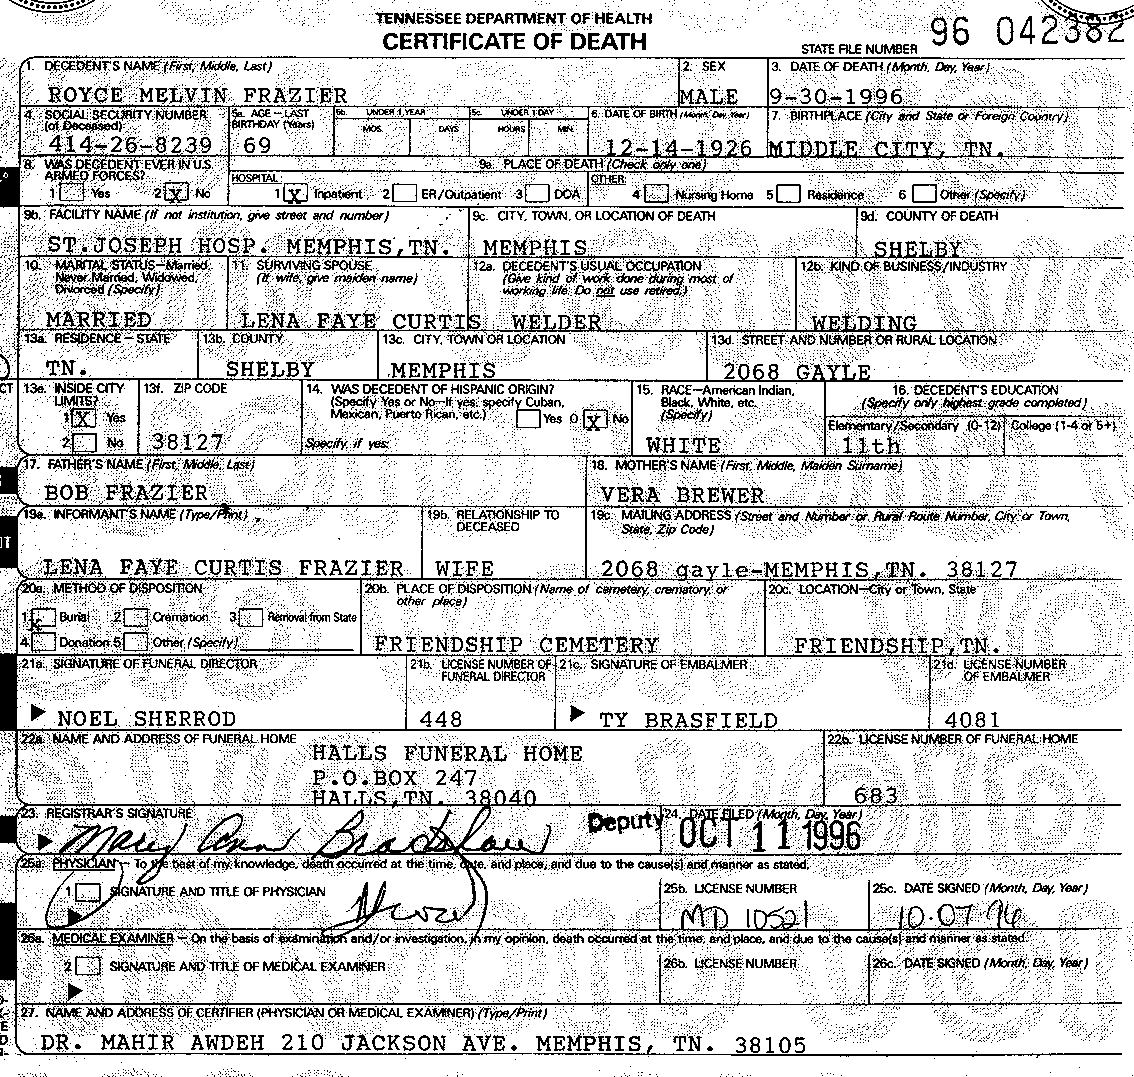 TENNESSEE DEPARTMENT OF HEALTH
CERTIFICATE OF DEATH
STATE FILE NUMBER 96 042382
1. DECEDENT'S NAME (First, Middle, Last) 2. SEX 3. DATE OF DEATH (Month, Day, Year)
ROYCE MELVIN FRAZIER MALE 9-30-1996
4. SOCIAL SECURITY NUMBER (of Deceased) 5a. AGE—LAST BIRTHDAY (Years) 5b. UNDER 1 YEAR MOS. DAYS 5c. UNDER 1 DAY HOURS MIN. 6. DATE OF BIRTH (Month, Day, Year) 7. BIRTHPLACE (City and State or Foreign Country)
414-26-8239 69 12-14-1926 MIDDLE CITY, TN.
8. WAS DECEDENT EVER IN U.S. ARMED FORCES? 9a. PLACE OF DEATH (Check only one)
HOSPITAL: OTHER:
1 Yes 2 X No 1 X Inpatient 2 ER/Outpatient 3 DOA 4 Nursing Home 5 Residence 6 Other (Specify)
9b. FACILITY NAME (If not institution, give street and number) 9c. CITY, TOWN, OR LOCATION OF DEATH 9d. COUNTY OF DEATH
ST.JOSEPH HOSP. MEMPHIS,TN. MEMPHIS SHELBY
10. MARITAL STATUS—Married, Never Married, Widowed, Divorced (Specify) 11. SURVIVING SPOUSE (If wife, give maiden name) 12a. DECEDENT'S USUAL OCCUPATION (Give kind of work done during most of working life. Do not use retired.) 12b. KIND OF BUSINESS/INDUSTRY
MARRIED LENA FAYE CURTIS WELDER WELDING
13a. RESIDENCE—STATE 13b. COUNTY 13c. CITY, TOWN OR LOCATION 13d. STREET AND NUMBER OR RURAL LOCATION
TN. SHELBY MEMPHIS 2068 GAYLE
13e. INSIDE CITY LIMITS? 13f. ZIP CODE 14. WAS DECEDENT OF HISPANIC ORIGIN? (Specify Yes or No—If yes, specify Cuban, Mexican, Puerto Rican, etc.) 15. RACE—American Indian, Black, White, etc. (Specify) 16. DECEDENT'S EDUCATION (Specify only highest grade completed)
1 X Yes Yes 0 X No Elementary/Secondary (0-12) College (1-4 or 5+)
2 No 38127 Specify if yes: WHITE 11th
17. FATHER'S NAME (First, Middle, Last) 18. MOTHER'S NAME (First, Middle, Maiden Surname)
BOB FRAZIER VERA BREWER
19a. INFORMANT'S NAME (Type/Print) 19b. RELATIONSHIP TO DECEASED 19c. MAILING ADDRESS (Street and Number or Rural Route Number, City or Town, State, Zip Code)
LENA FAYE CURTIS FRAZIER WIFE 2068 gayle-MEMPHIS,TN. 38127
20a. METHOD OF DISPOSITION 20b. PLACE OF DISPOSITION (Name of cemetery, crematory, or other place) 20c. LOCATION—City or Town, State
1 X Burial 2 Cremation 3 Removal from State
4 Donation 5 Other (Specify) FRIENDSHIP CEMETERY FRIENDSHIP,TN.
21a. SIGNATURE OF FUNERAL DIRECTOR 21b. LICENSE NUMBER OF FUNERAL DIRECTOR 21c. SIGNATURE OF EMBALMER 21d. LICENSE NUMBER OF EMBALMER
NOEL SHERROD 448 TY BRASFIELD 4081
22a. NAME AND ADDRESS OF FUNERAL HOME 22b. LICENSE NUMBER OF FUNERAL HOME
HALLS FUNERAL HOME
P.O.BOX 247
HALLS,TN. 38040 683
23. REGISTRAR'S SIGNATURE 24. DATE FILED (Month, Day, Year)
Mary Ann Bradshaw Deputy OCT 11 1996
25a. PHYSICIAN – To the best of my knowledge, death occurred at the time, date, and place, and due to the cause(s) and manner as stated.
1 SIGNATURE AND TITLE OF PHYSICIAN 25b. LICENSE NUMBER 25c. DATE SIGNED (Month, Day, Year)
MD 10521 10-07-96
26a. MEDICAL EXAMINER – On the basis of examination and/or investigation, in my opinion, death occurred at the time, and place, and due to the cause(s) and manner as stated.
2 SIGNATURE AND TITLE OF MEDICAL EXAMINER 26b. LICENSE NUMBER 26c. DATE SIGNED (Month, Day, Year)
27. NAME AND ADDRESS OF CERTIFIER (PHYSICIAN OR MEDICAL EXAMINER) (Type/Print)
DR. MAHIR AWDEH 210 JACKSON AVE. MEMPHIS, TN. 38105